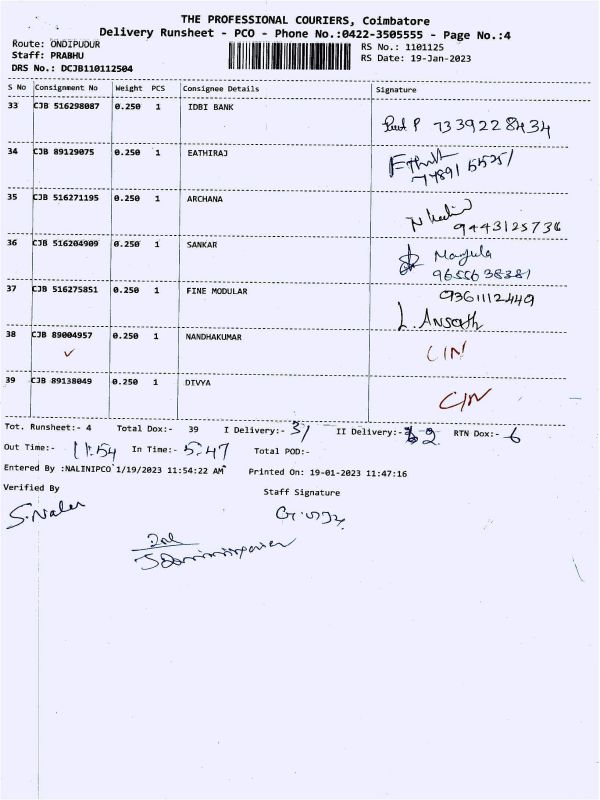 THE PROFESSIONAL COURIERS, Coimbatore
Delivery Runsheet - PCO - Phone No.:0422-3505555 - Page No.:4
Route: ONDIPUDUR
RS No.: 1101125
Staff: PRABHU
RS Date: 19-Jan-2023
DRS No.: DCJB110112504
S No Consignment No Weight PCS Consignee Details Signature
33 CJB 516298087 0.250 1 IDBI BANK
7339228434
34 CJB 89129075 0.250 1 EATHIRAJ
35 CJB 516271195 0.250 1 ARCHANA
9443125736
36 CJB 516204909 0.250 1 SANKAR
Manjula
9655638381
37 CJB 516275851 0.250 1 FINE MODULAR
9361112449
L. Ansath
38 CJB 89004957 0.250 1 NANDHAKUMAR
✓ CIN
39 CJB 89138049 0.250 1 DIVYA
CIN
Tot. Runsheet:- 4 Total Dox:- 39 I Delivery:- 31 II Delivery:- 2 RTN Dox:- 6
Out Time:- 11:54 In Time:- 5:47 Total POD:-
Entered By :NALINIPCO 1/19/2023 11:54:22 AM Printed On: 19-01-2023 11:47:16
Verified By
Staff Signature
2nd